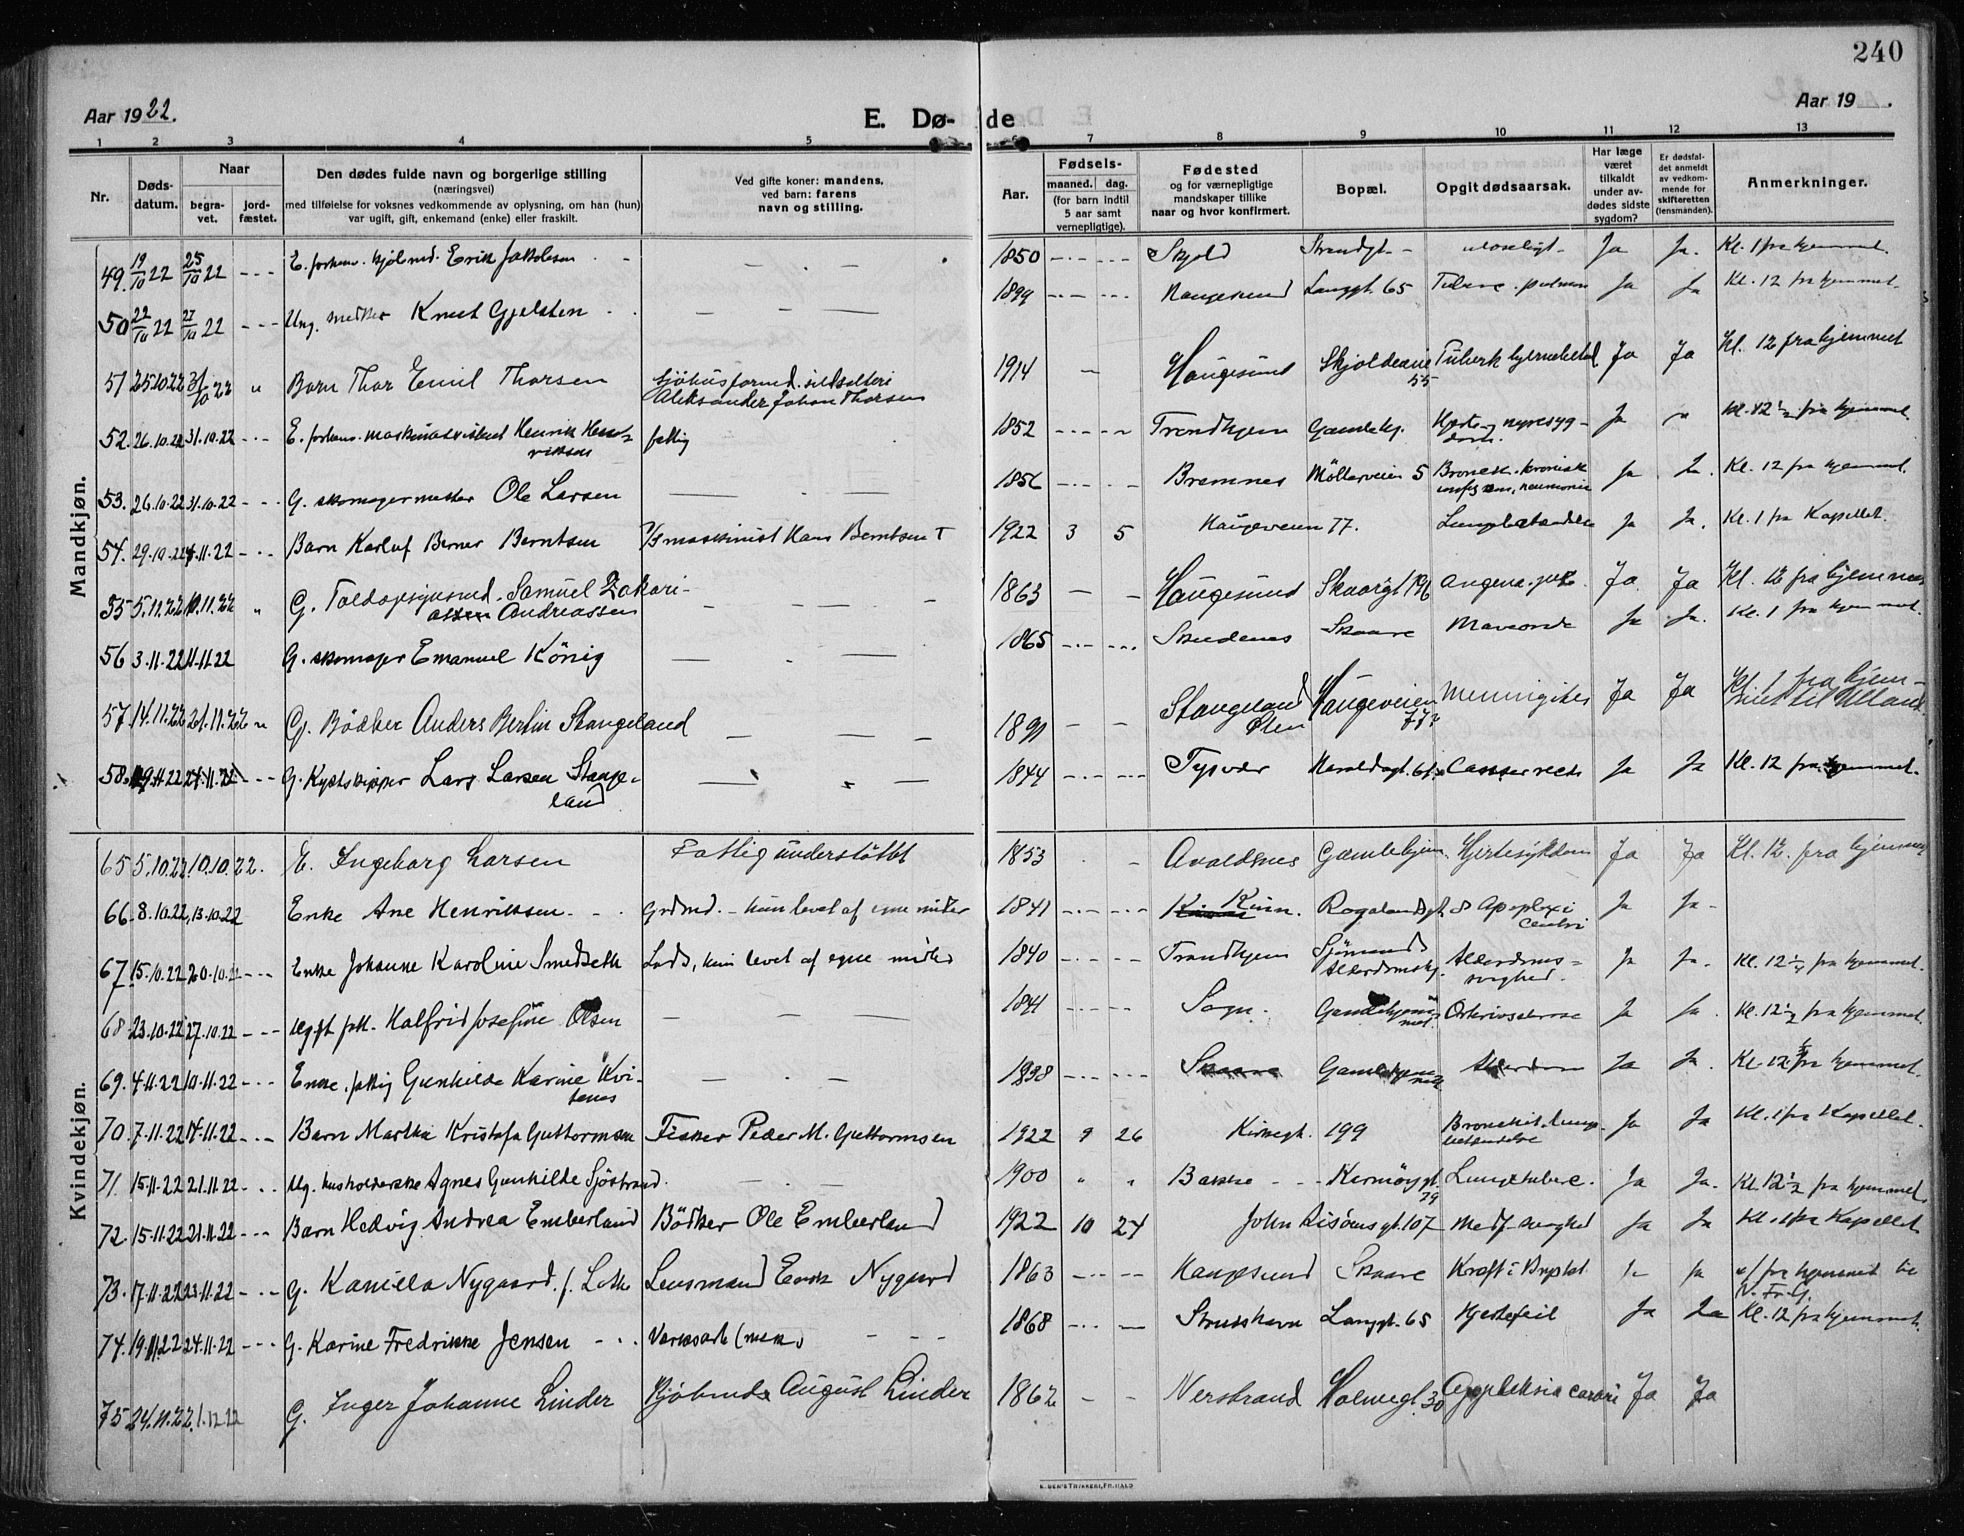 240
Aar 1922.
E. Døde
Aar 19 .
1 2 3 4 5 6 7 8 9 10 11 12 13
Nr.
Døds-datum.
Naar
begravet.
jordfæstet.
Den dødes fulde navn og borgerlige stilling
(næringsvei)
med tilføielse for voksnes vedkommende av oplysning, om han (hun)
var ugift, gift, enkemand (enke) eller fraskilt.
Ved gifte koner: mandens,
ved barn: farens
navn og stilling.
Aar.
Fødsels-
maaned. dag.
(for barn indtil
5 aar samt
vernepligtige).
Fødested
og for værnepligtige
mandskaper tillike
naar og hvor konfirmert.
Bopæl.
Opgit dødsaarsak.
Har læge
været
tilkaldt
under av-
dødes sidste
sygdom?
Er dødsfal-
det anmeldt
av vedkom-
mende for
skifteretten
(lensmanden).
Anmerkninger.
Mandkjøn.
49. 19/10 22 25/10 22 E. forhenv. kjøbmd. Erik Jakobsen 1850 Skjold Strandgt. Ja Ja. Kl. 1 fra hjemmet.
50 22/10 22 27/10 22 Ung. Knut Gjelsten 1899 Haugesund Langgt. 65 Ja Ja Kl. 12 fra hjemmet.
51 25.10.22 31/10 22 " Barn Thor Emil Thorsen Sjøhusformd. sildsalteri
Aleksander Johan Thorsen 1914 Haugesund 55 Ja Ja Kl. 12 fra hjemmet
52. 26.10.22 31.10.22 E. forhenv. Henrik Hen-
riksen fattig 1852 Trondhjem Gamlehj. Ja " Kl. 12 1/2 fra hjemmet.
53. 26.10.22 31.10.22 G. skomagermester Ole Larsen 1856 Bremnes Møllerveien 5 Bronch. kronisk Ja Ja. Kl. 12 fra hjemmet.
54. 29.10.22 4.11.22 Barn Karluf Berner Berntsen maskinist Hans Berntsen 1922 3 5 Haugeveien 77. Lungebetændelse Ja Ja. Kl. 1 fra Kapellet.
55 5.11.22 10.11.22 " G. Samuel Zakari-
assen Andreassen 1863 Haugesund Skaaregt 196 Angina. pect. Ja Ja Kl. 12 fra hjemmet
56 3.11.22 11.11.22 G. skomager Emanuel König 1865 Skudenes Skaare Ja Ja. Kl. 1 fra hjemmet.
57 14.11.22 21.11.22 " G. Bödker Anders Berlin Stangeland Stangeland
Ølen Haugeveien Meningites Ja Ja Kl. 1 fra hjem-
met til Ølland.
58. 19.11.22 24.11.22 G. Kystskipper Lars Larsen Stange-
land 1844 Tysvær Haraldsgt. Ja Ja Kl. 12 fra hjemmet.
Kvindekjøn.
65 5.10.22. 10.10.22. E. Ingeborg Larsen Fattig understöttet 1853 Avaldsnes Gamlehjem. Hjertesykdom Ja Ja Kl. 12. fra hjemmet
66 8.10.22. 13.10.22 Enke Ane Henriksen Grdmd. hun levet af egne midler 1841 Kinn. Rogalandsgt. 8 Apoplexi
cerebri Ja Ja
67. 15.10.22 20.10.22 Enke Johanne Karoline Smedseth Lods, hun levet af egne midler 1840 Trondhjem Sjømands
Alderdomshj. Alderdoms-
svaghed. Ja Ja. Kl. 12 1/4 fra hjemmet.
68 23.10.22 27.10.22 Ugift ftt. Halfrid Josefine Olsen Sogn. Ja Ja. Kl. 12 1/2 fra hjemmet.
69. 4.11.22 10.11.22 Enke. fattig Gunhilde Karine Kvi-
tenes 1838 Skaare Gamlehjem
met Alderdom Ja Ja. Kl. 12 fra hjemmet.
70. 7.11.22 14.11.22 Barn Martha Kristofa Guttormsen Fisker Peder M. Guttormsen 1922 9 26 Kirkegt. 199 Bronchit. Lunge-
betændelse Ja Ja Kl. 1 fra Kapellet.
71. 15.11.22 21.11.22 Ug. husholderske Agnes Gunhilde Sjöstrand 1900 " " Bakke Karmöygt.
79 Lungetuberc. Ja Ja. Kl. 12 1/2 fra hjemmet.
72. 15.11.22 21.11.22 Barn Hedvig Andrea Emberland Bödker Ole Emberland 1922 10 24 John Risöensgt. 107 Medf. svaghed Ja Ja Kl. 1 fra Kapellet
73. 17.11.22 23.11.22 G. Kamilla Nygaard f. Lothe Lensmand Erik Nygaard 1863 Haugesund Skaare Kræft i Brystet Ja fra hjemmet til
V. Fr. G.
74. 19.11.22 24.11.22 G. Karine Fredrikke Jensen 1868 Strusshavn Langgt. 65 Hjertefeil Ja Ja Kl. 12 fra hjemmet.
75 24.11.22. 1.12.22 G. Inger Johanne Linder Kjöbmd. August Linder 1862 Nerstrand 30 Ja Ja